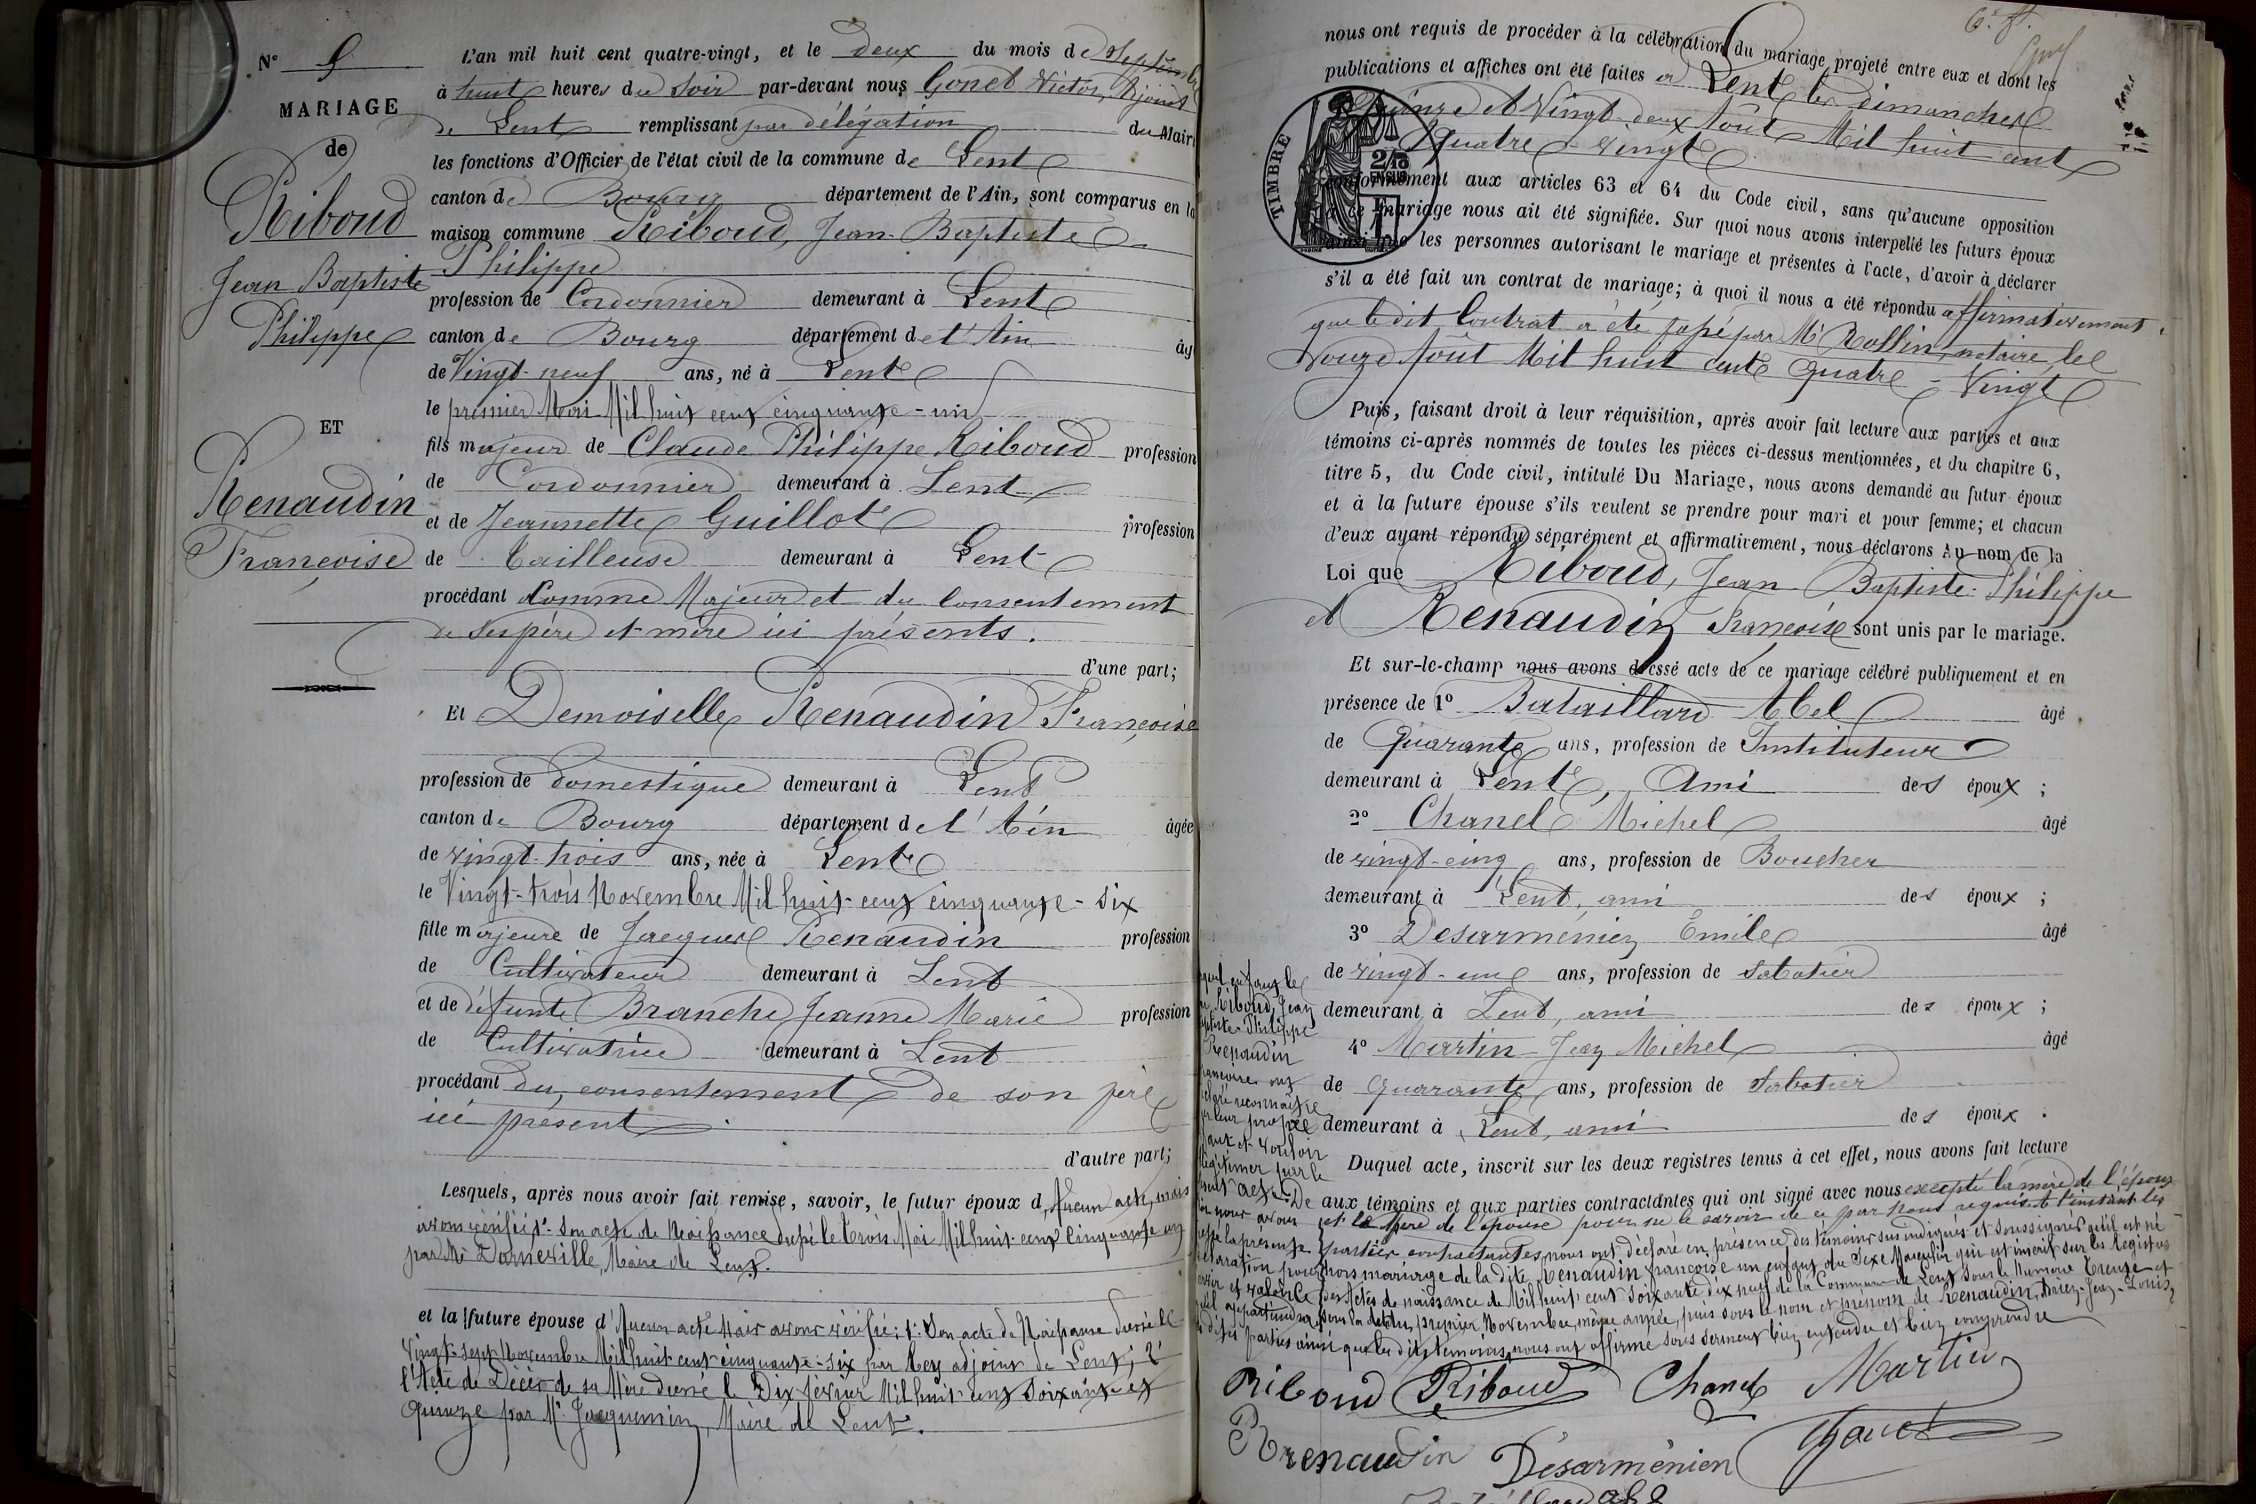 N° 9
MARIAGE
de
Riboud
Jean Baptiste
Philippe
ET
Renaudin
Françoise
L'an mil huit cent quatre-vingt, et le deux du mois de Septembre
à huit heures du Soir par-devant nous Gonet Victor, Adjoint
de Lent remplissant par délégation du Maire
les fonctions d'Officier de l'état civil de la commune de Lent
canton de Bourg département de l'Ain, sont comparus en la
maison commune Riboud, Jean-Baptiste
Philippe
profession de Cordonnier demeurant à Lent
canton de Bourg département de l'Ain âgé
de Vingt-neuf ans, né à Lent
le premier Mai Mil huit cent cinquante-un
fils majeur de Claude Philippe Riboud profession
de Cordonnier demeurant à Lent
et de Jeannette Guillot profession
de Tailleuse demeurant à Lent
procédant comme Majeur et du consentement
de ses père et mère ici présents.
d'une part;
Et Demoiselle Renaudin Françoise
profession de domestique demeurant à Lent
canton de Bourg département de l'Ain âgée
de vingt-trois ans, née à Lent
le Vingt-trois Novembre Mil huit-cent cinquante-six
fille majeure de Jacques Renaudin profession
de Cultivateur demeurant à Lent
et de défunte Branche Jeanne Marie profession
de Cultivatrice demeurant à Lent
procédant du consentement de son père
ici présent.
d'autre part;
Lesquels, après nous avoir fait remise, savoir, le futur époux d'Aucun acte, mais
avons vérifié 1° Son acte de Naissance dressé le trois Mai Mil huit-cent Cinquante un
par Mr Darneville, Maire de Lent.
et la future épouse d'Aucun acte Mais avons vérifié: 1° Son acte de Naissance dressé le
Vingt-sept Novembre Mil huit cent cinquante-six par Rey adjoint de Lent; 2°
l'Acte de Décès de sa Mère dressé le Dix février Mil huit cent soixante et
quinze par Mr Jacquemin, Maire de Lent.
nous ont requis de procéder à la célébration du mariage projeté entre eux et dont les
publications et affiches ont été faites à Lent les dimanches
Quinze et Vingt-deux Août Mil huit cent
Quatre-vingt
TIMBRE
conformément aux articles 63 et 64 du Code civil, sans qu'aucune opposition
à ce mariage nous ait été signifiée. Sur quoi nous avons interpellé les futurs époux
ainsi que les personnes autorisant le mariage et présentes à l'acte, d'avoir à déclarer
s'il a été fait un contrat de mariage; à quoi il nous a été répondu affirmativement
que le dit Contrat a été passé par Mr Rollin, notaire, le
Douze Août Mil huit cent Quatre-Vingt
Puis, faisant droit à leur réquisition, après avoir fait lecture aux parties et aux
témoins ci-après nommés de toutes les pièces ci-dessus mentionnées, et du chapitre 6,
titre 5, du Code civil, intitulé Du Mariage, nous avons demandé au futur époux
et à la future épouse s'ils veulent se prendre pour mari et pour femme; et chacun
d'eux ayant répondu séparément et affirmativement, nous déclarons Au nom de la
Loi que Riboud, Jean Baptiste-Philippe
et Renaudin Françoise sont unis par le mariage.
Et sur-le-champ nous avons dressé acte de ce mariage célébré publiquement et en
présence de 1° Bataillard Abel âgé
de Quarante ans, profession de Instituteur
demeurant à Lent, Ami des époux ;
2° Chanel Michel âgé
de vingt-cinq ans, profession de Boucher
demeurant à Lent, ami des époux ;
3° Desarménien Emile âgé
de vingt-un ans, profession de Sabotier
demeurant à Lent, ami des époux ;
4° Martin Jean Michel âgé
de Quarante ans, profession de Sabotier
demeurant à Lent, ami des époux .
Duquel acte, inscrit sur les deux registres tenus à cet effet, nous avons fait lecture
aux témoins et aux parties contractantes qui ont signé avec nous excepté la mère de l'époux
et le père de l'épouse pour ne le savoir de ce par nous requis. A l'instant les
parties contractantes, nous ont déclaré en présence des témoins sus indiqués et soussignés qu'il est né
hors mariage de la dite Renaudin françoise un enfant du Sexe Masculin qui est inscrit sur les Registres
des Actes de naissance de Mil huit cent Soixante dix neuf de la Commune de Lent sous le Numéro Treize et
sous la date du premier Novembre, même année, puis sous le nom et prénom de Renaudin, Jean-Louis,
lequel enfant les
Riboud, Jean
Baptiste Philippe
Renaudin
françoise ont
déclaré reconnaître
pour leur propre
enfant et vouloir
légitimer par le
présent acte. De
Riboud Riboud Chanel Martin
Renaudin Désarménien Gonet